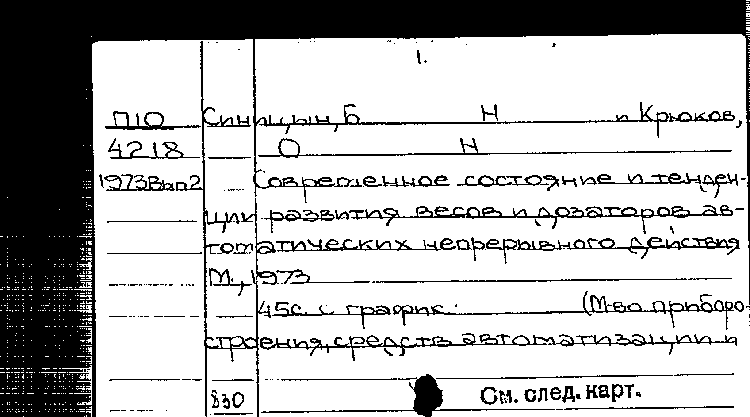 1.
П10 Синицын, Б Н и Крюков,
4218 О Н
1973Вып2 Современное состояние и тенден-
ции развития весов и дозаторов ав-
томатических непрерывного действия
М., 1973
45с. с график. (М-во приборо
строения, средств автоматизации и
830 См. след. карт.